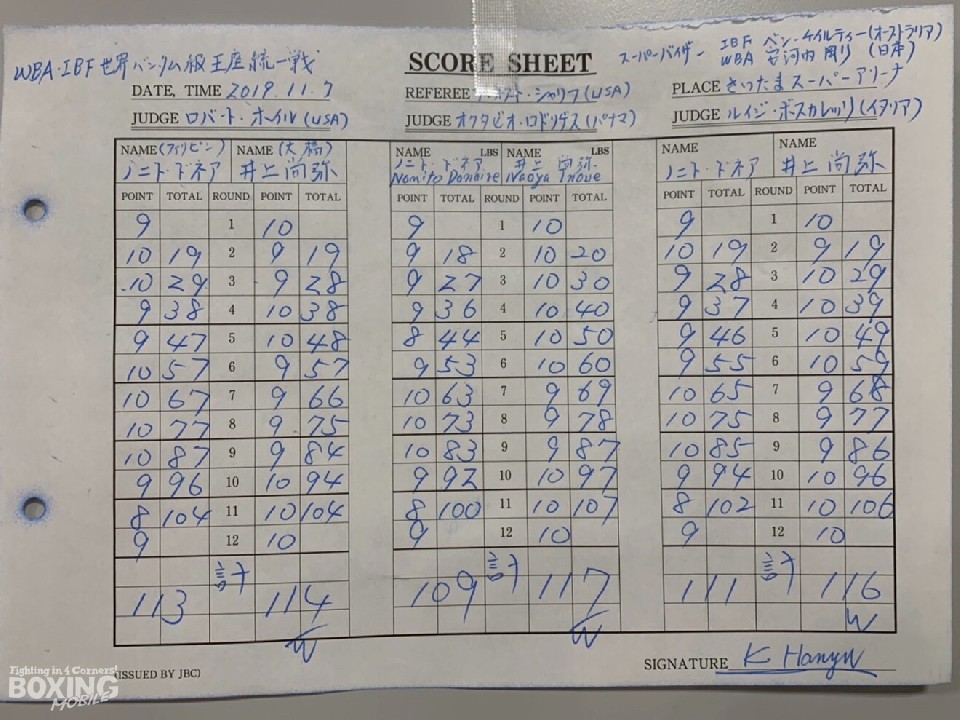 WBA・IBF世界バンタム級王座統一戦
SCORE SHEET
スーパーバイザー IBF ベン・ケイルティー(オーストラリア)
WBA 安河内剛 (日本)
DATE, TIME 2019.11.7
REFEREE アーネスト・シャリフ(USA)
PLACE さいたまスーパーアリーナ
JUDGE ロバート・ホイル(USA)
JUDGE オクタビオ・ロドリゲス(パナマ)
JUDGE ルイジ・ボスカレッリ(イタリア)
NAME(フィリピン) NAME(大橋) NAME LBS NAME LBS NAME NAME
ノニト・ドネア 井上尚弥 ノニト・ドネア 井上尚弥 ノニト・ドネア 井上尚弥
Nonito Donaire Naoya Inoue
POINT TOTAL ROUND POINT TOTAL POINT TOTAL ROUND POINT TOTAL POINT TOTAL ROUND POINT TOTAL
9 1 10 9 1 10 9 1 10
10 19 2 9 19 9 18 2 10 20 10 19 2 9 19
10 29 3 9 28 9 27 3 10 30 9 28 3 10 29
9 38 4 10 38 9 36 4 10 40 9 37 4 10 39
9 47 5 10 48 8 44 5 10 50 9 46 5 10 49
10 57 6 9 57 9 53 6 10 60 9 55 6 10 59
10 67 7 9 66 10 63 7 9 69 10 65 7 9 68
10 77 8 9 75 10 73 8 9 78 10 75 8 9 77
10 87 9 9 84 10 83 9 9 87 10 85 9 9 86
9 96 10 10 94 9 92 10 10 97 9 94 10 10 96
8 104 11 10 104 8 100 11 10 107 8 102 11 10 106
9 12 10 9 12 10 9 12 10
計 計 計
113 114 109 117 111 116
W W W
SIGNATURE K Hanyu
(ISSUED BY JBC)
Fighting in 4 Corners!
BOXING
MOBILE